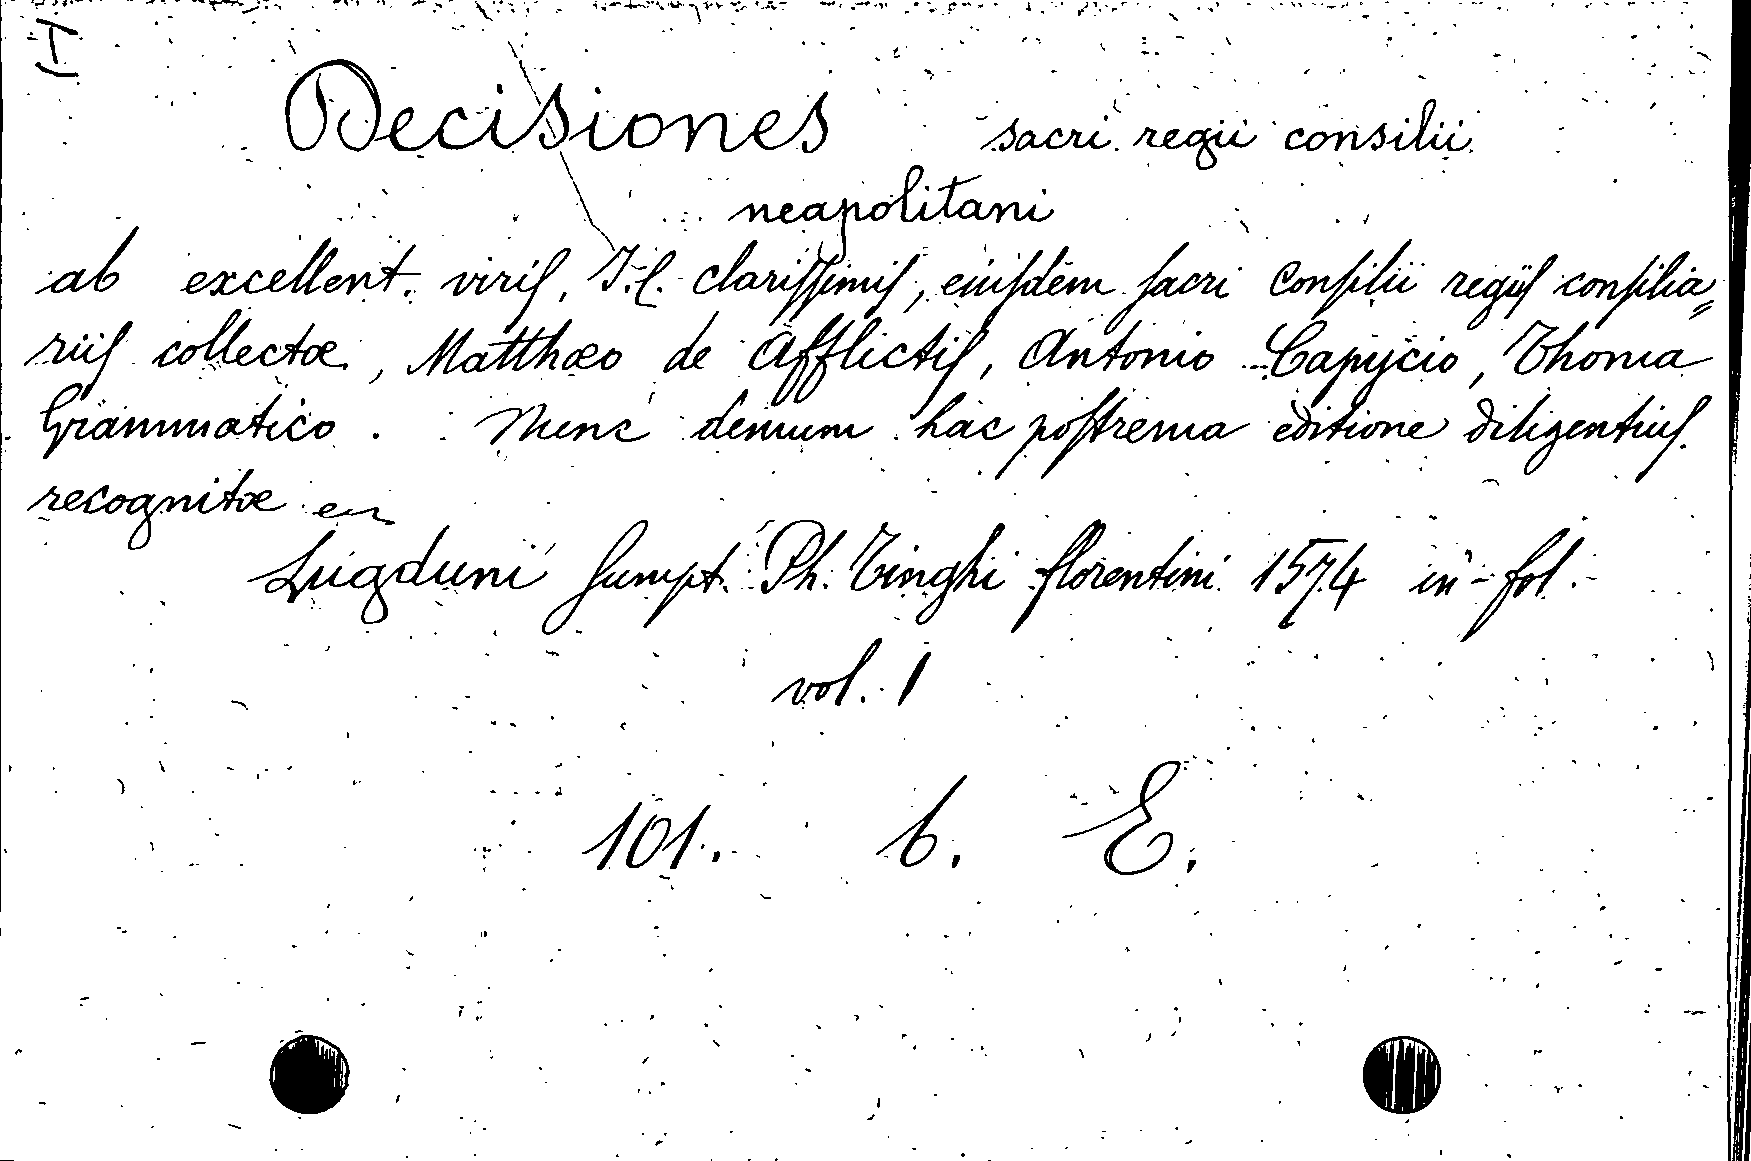 Decisiones sacri regii consilii
neapolitani
ab excellent. viris, I.C. clarissimis, eiusdem sacri Consilii regiis consilia-
riis collectæ, Matthæo de Afflictis, Antonio Capycio, Thoma
Grammatico. Nunc demum hac postrema editione diligentius
recognitæ
Lugduni sumpt. Ph. Tinghi florentini 1574 in-fol.
vol. 1
101. b. E.